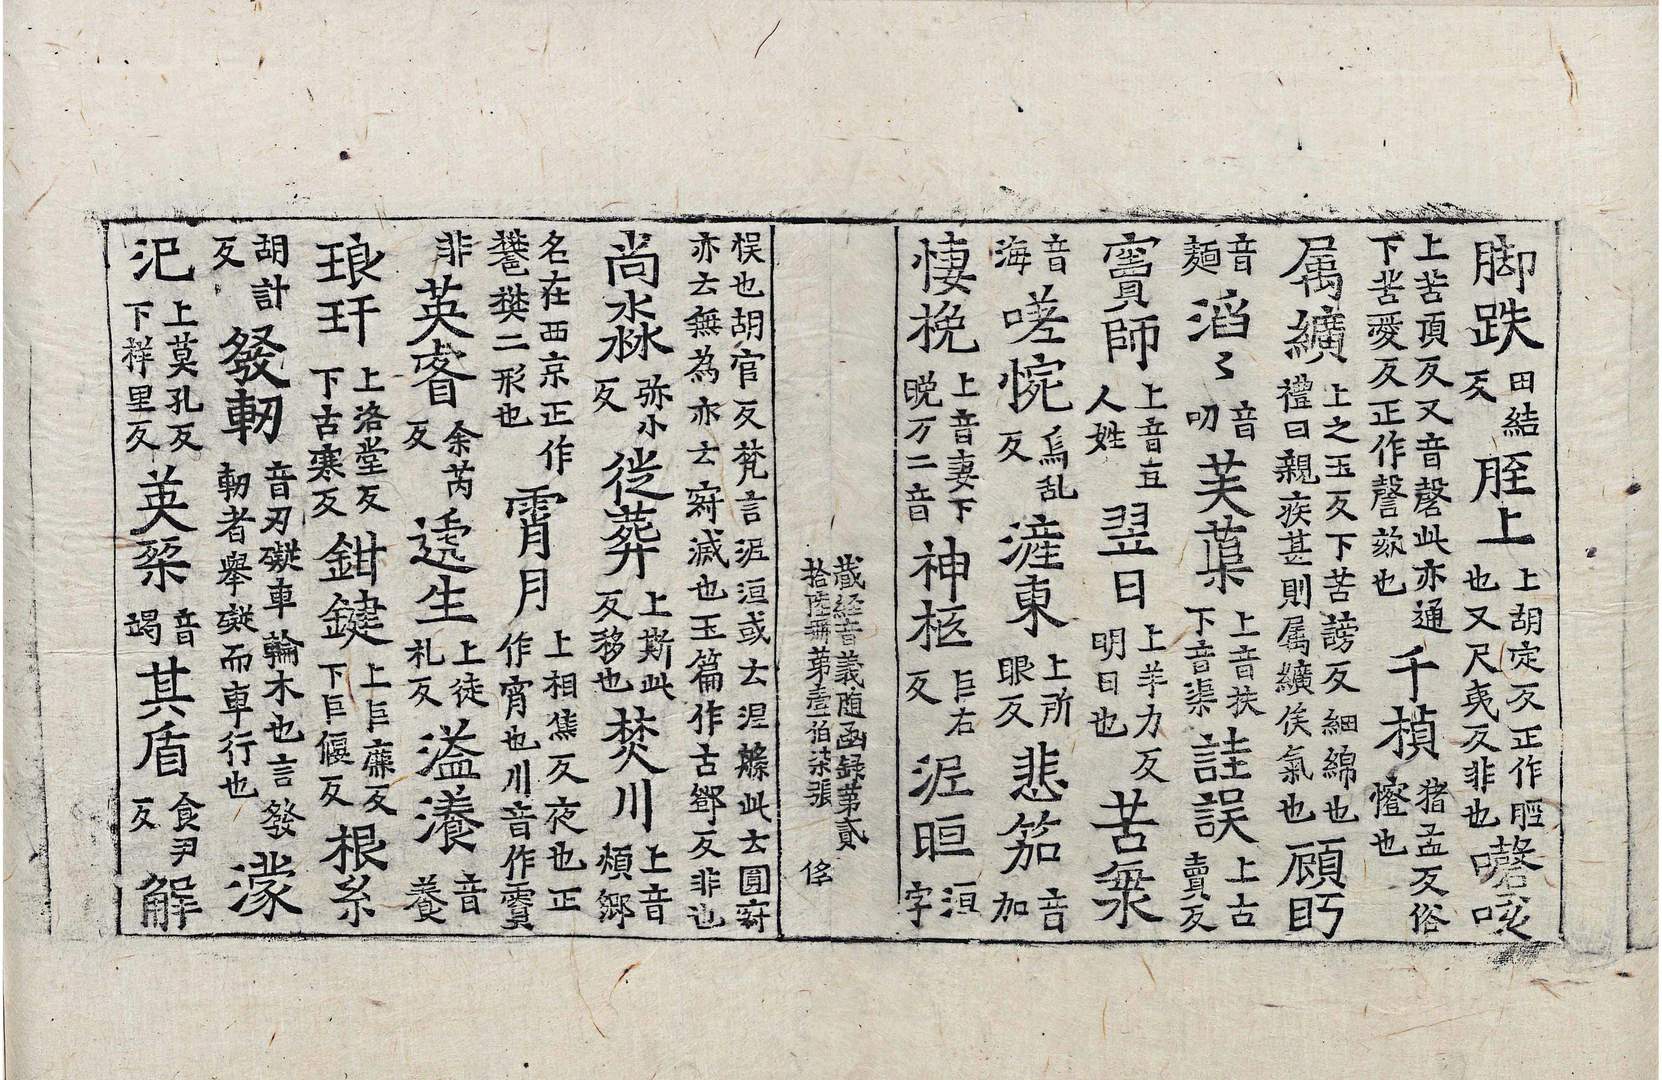 脚跌田結反胵上上胡定反正作脛也又尺夷反非也謦咳
上苦頂反又音磬此亦通下苦愛反正作謦欬也千楨猪孟反俗憕也
属纊上之玉反下苦謗反細綿也禮曰親疾甚則属纊俟氣也頋眄
音麺滔〻音叨芙蕖上音扶下音渠詿誤上古賣反
竇師上音豆人姓翌日上羊力反明日也苦衆
音海嗟惋烏乱反滻東上所眼反悲笳音加
悽挽上音妻下晚万二音神柩巨右反泥晅洹字
藏經音義随函録第貳拾陸冊第壹伯柒張 侈
悮也胡官反梵言泥洹或云涅槃此云圓寂
亦云無為亦云寂滅也玉篇作古鄧反非也
尚淼弥小反徙葬上斯此反移也焚川上音煩鄉
名在西京正作樊二形也霄月上相焦反夜也正作宵也川音作霣
非英睿余芮反逵生上徒札反溢瀁音養
琅玕上洛堂反下古寒反鉗鍵上巨廉反下巨偃反根系
胡計反發軔音刃礙車輪木也言發軔者舉礙而車行也濛
汜上莫孔反下样里反英桀音竭其盾食尹反解